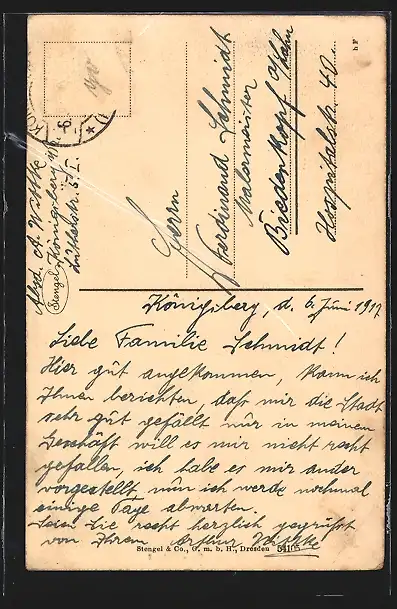 Absd. A. Wittke
Königsberg Pr.
Lutherstr. 5 I.
Stengel
Herrn
Ferdinand Schmidt
Malermeister
Biedenkopf a/Lahn
Hospitalstr. 40.
Königsberg, d. 6. Juni 1917
Liebe Familie Schmidt!
Hier gut angekommen, kann ich
Ihnen berichten, daß mir die Stadt
sehr gut gefällt nur in meinem
Geschäft will es mir nicht recht
gefallen, ich habe es mir ander
vorgestellt, nun ich werde nochmal
einige Tage abwarten.
Seien Sie recht herzlich gegrüßt
von Ihrem Arthur Wittke
Stengel & Co., G. m. b. H., Dresden 34105